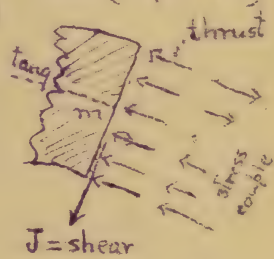 thrust
tang
m
stress
couple
J = shear